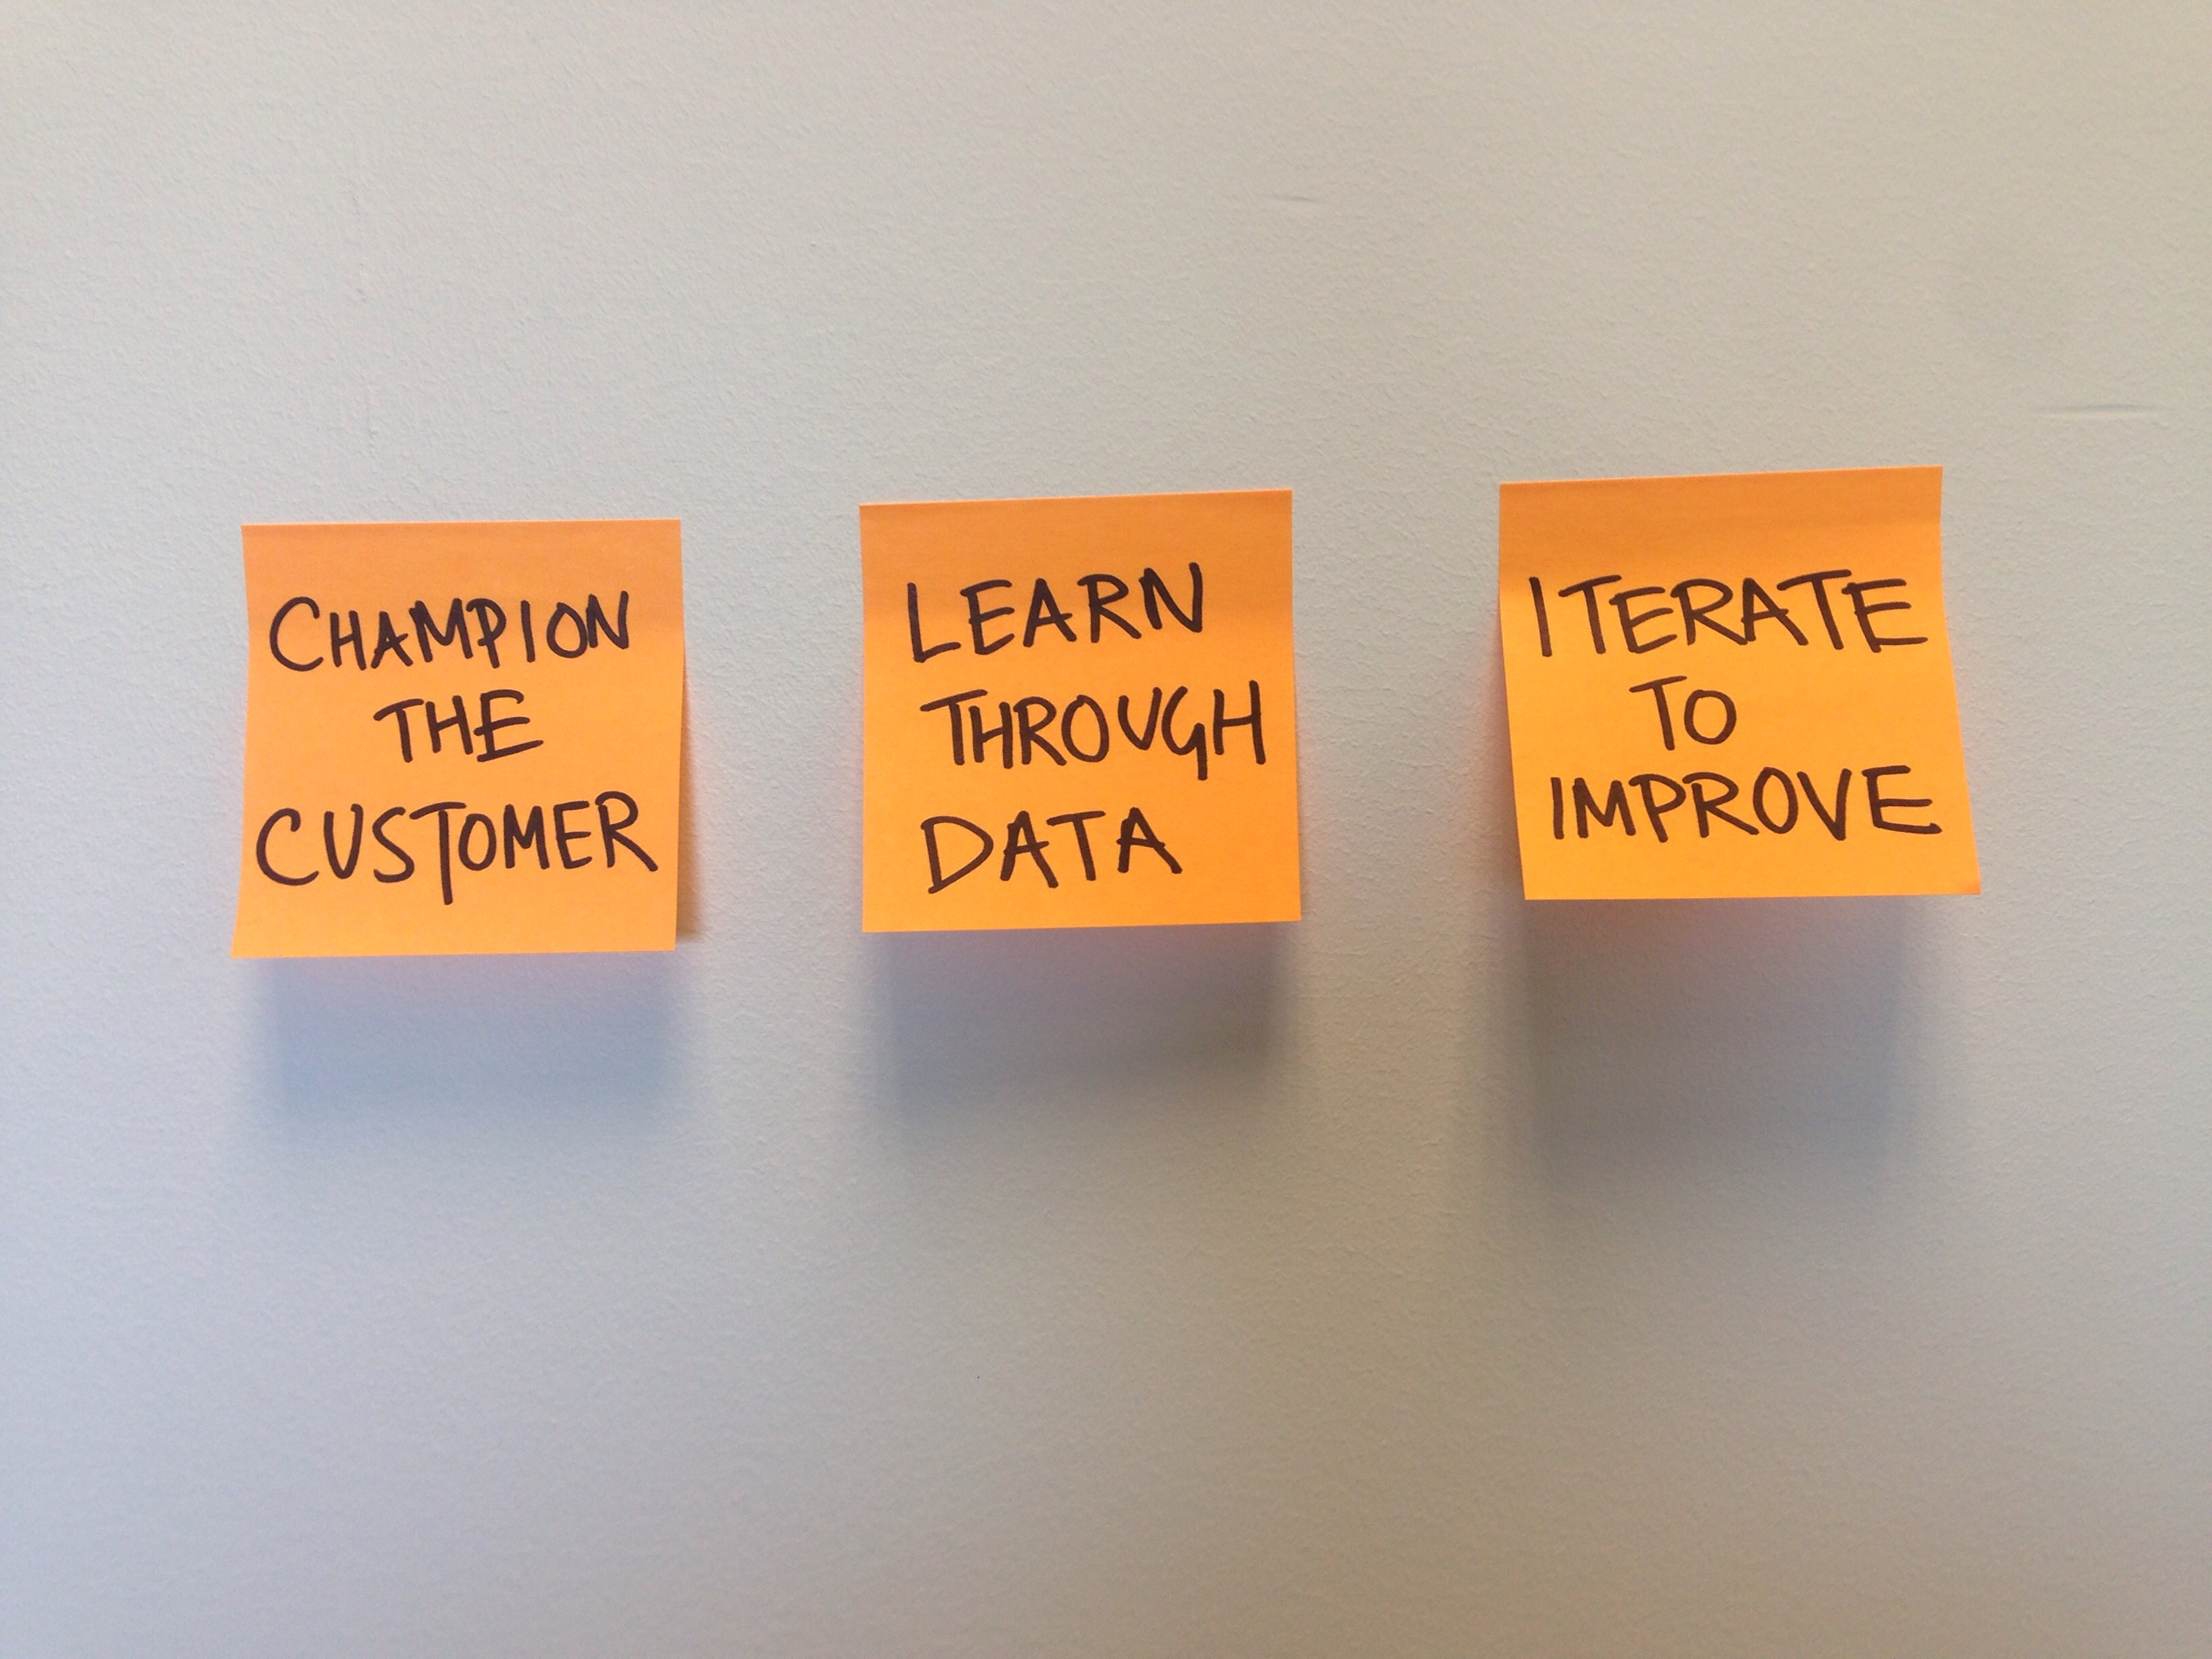 CHAMPION
THE
CUSTOMER
LEARN
THROUGH
DATA
ITERATE
TO
IMPROVE